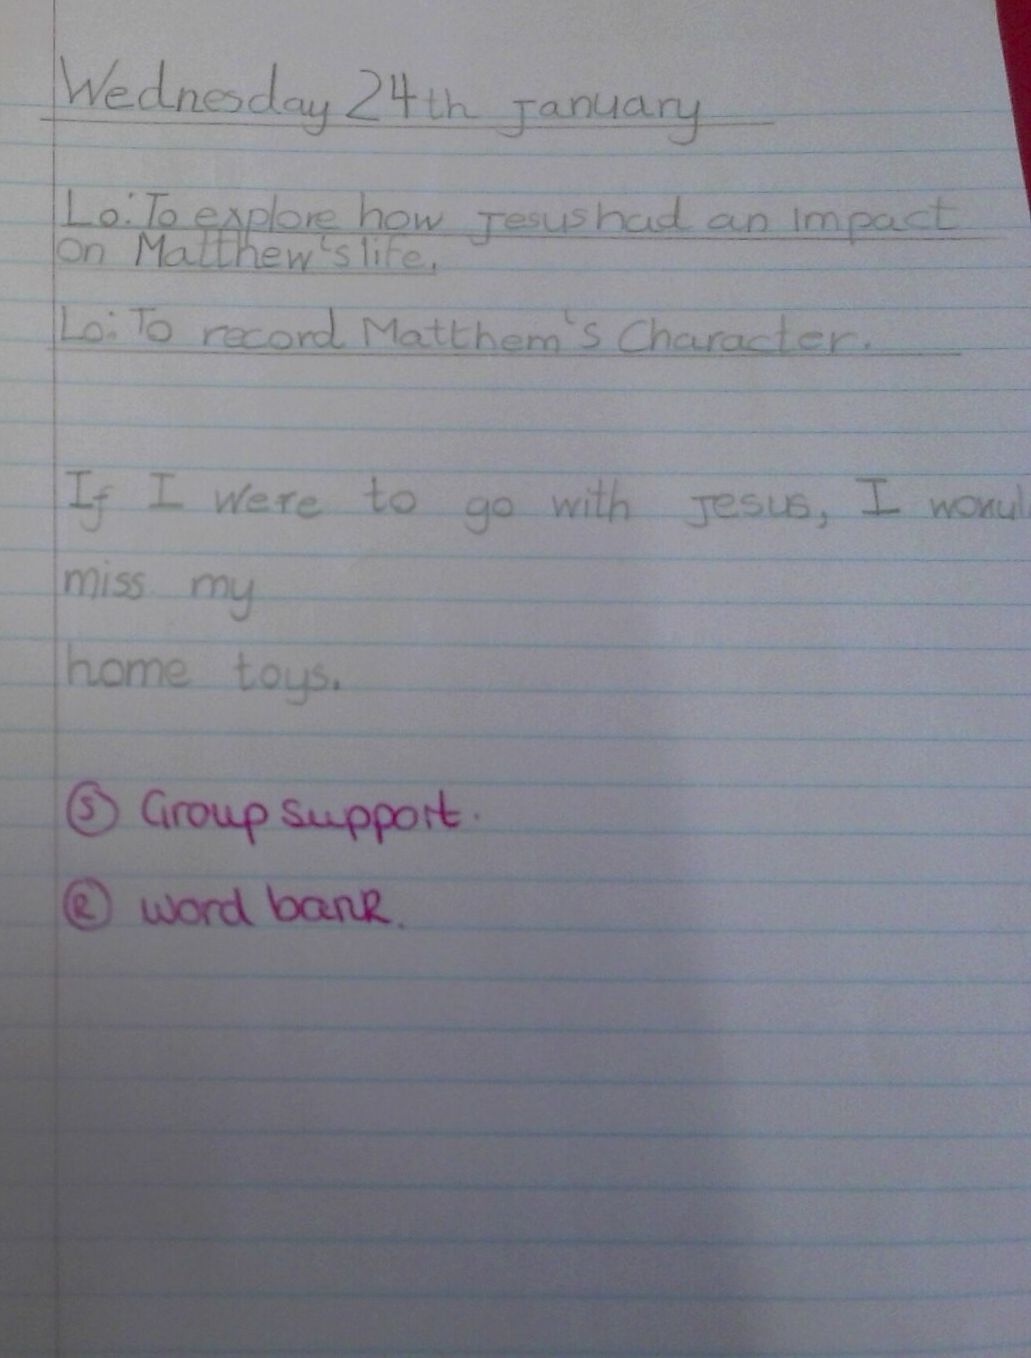 Wednesday 24th January
Lo: To explore how Jesus had an impact
on Matthew's life.
Lo: To record Matthem's Character.
If I were to go with Jesus, I wonul
miss my
home toys.
S Group support.
R word bank.